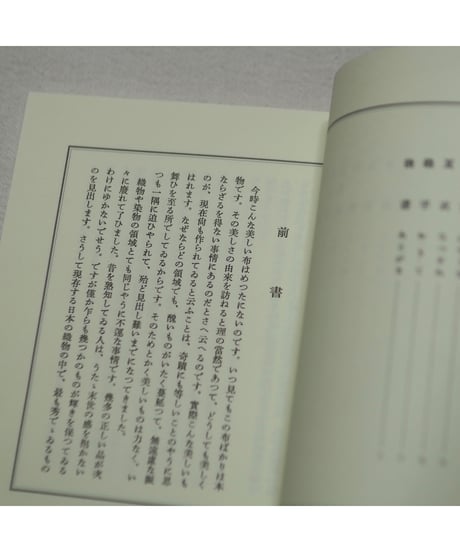 前書
今時こんな美しい布はめつたにないのです。いつ見てもこの布ばかりは本
物です。その美しさの由来を訪ねると理の當然であつて、どうしても美しく
ならざるを得ない事情にあるのだとさへ云へるのです。實際こんな美しいも
のが、現在尚も作られてゐると云ふことは、奇蹟にも等しいことのやうに思
はれます。なぜならどの領域でも、醜いものがいたく蔓延つて、無遠慮な振
舞ひを至る所でしてゐるからです。そのためとかく美しいものは力なく、い
つも一隅に追ひやられて、殆ど見出し難いまでになつてきました。
織物や染物の領域とても同じやうに不運な事情です。幾多の正しい品が次
々に廢れて了ひました。昔を熟知してゐる人は、うたゝ末世の感を抱かない
わけにゆかないでせう。ですが僅か乍らも幾つかのものが輝きを保つてゐる
のを見出します。さうして現存する日本の織物の中で、最も秀でゝゐるもの